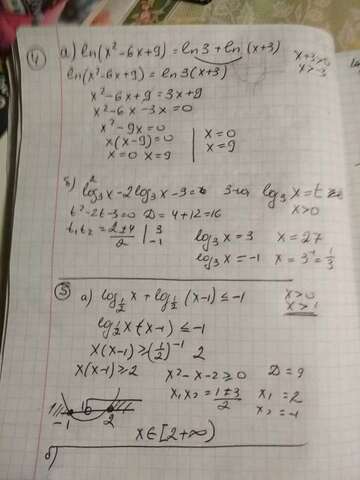 ④ а) ln(x²-6x+9) = ln3 + ln(x+3)
x+3>0
x>-3
ln(x²-6x+9) = ln3(x+3)
x²-6x+9 = 3x+9
x²-6x-3x=0
x²-9x=0
x(x-9)=0 | x=0
x=0 x=9 | x=9
б) log₃²x-2log₃x-3=0 log₃x=t
x>0
t²-2t-3=0 D=4+12=16
t₁t₂ = (2±4)/2 | 3
-1
log₃x=3 x=27
log₃x=-1 x=3⁻¹=1/3
⑤ а) log½x + log½(x-1) ≤ -1 x>0
x>1
log½x(x-1) ≤ -1
x(x-1) ≥ (½)⁻¹ 2
x(x-1) ≥ 2 x²-x-2≥0 D=9
x₁x₂ = (1±3)/2 x₁=2
x₂=-1
-1 2
x∈[2+∞)
б)